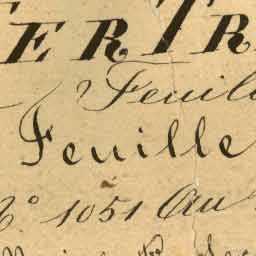 ER TR
Feuil
Feuille
N° 1051 Au